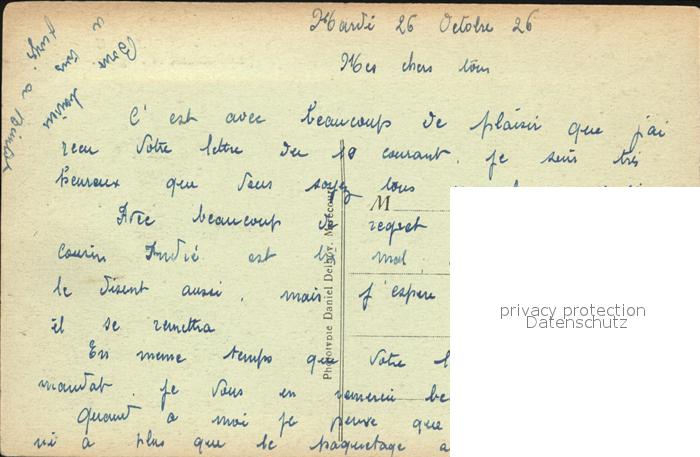 Mardi 26 Octobre 26
Mes chers tous
C'est avec beaucoup de plaisir que j'ai
recu votre lettre du 19 courant. je suis très
heureux que vous soyez tous
Avec beaucoup de regret
cousin André est mal
le disent aussi, mais j'espere
il se remettra
En meme temps que votre
mandat. je vous en remercie
Quand a moi je pense que
ni a plus que le paquetage a
Bons
a tous
a bientot
M
Phototypie Daniel Delboy, Mirecourt
privacy protection
Datenschutz